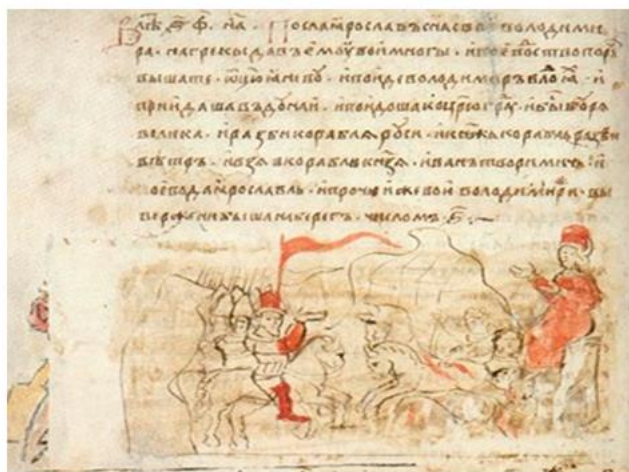 посла ꙗрославъ сн҃а своⷢ҇ володими
ра · на грекы давъ емоу вои многы · и
вышате · ѿцю · и поиде володимиръ в · и
приидаша въ доунаи · и поидоша к ц҃рюграⷣ · боурѧ
велика · и разби кораблѧ роуси · и кнѧжь кораблѧ разби
вѣтръ · и взѧ в корабль кн҃зѧ · иванъ творимичь · и
воевода ꙗрославль · и прочии же вои володимири · вы
вержени быша на берегъ · числомъ ·ѕ҃·